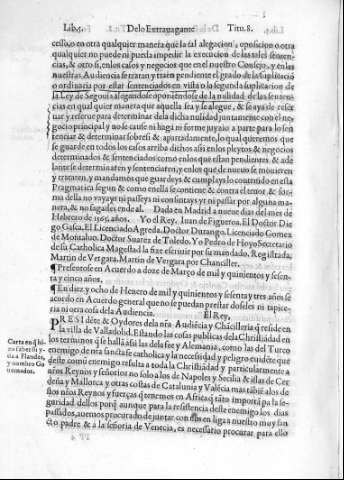 Lib.5. De lo Extrauagante Titu.8.
cesso, o en otra qualquier manera que la tal alegacion, oposicion o otra
qualquier no puede ni pueda impedir la execucion de las tales senten-
cias, & otro si, en los casos y negocios que en el nuestro Consejo, y en las
nuestras Audiencias se tratan y traten pendiente el grado de la suplicació
o ordinaria por estar sentenciados en vista o la segunda suplicacion de
la Ley de Segouia alegandose oponiendose de la nulidad de las senten-
cias en qual quier manera que aquella sea y se alegue, & se aya de reser
uar y reserue para determinar dela dicha nulidad juntamente con el ne-
gocio principal y no se cause ni haga ni forme juyzio a parte para lo sen
tenciar & determinar sobresi & apartadamente, lo qual queremos que
se guarde en todos los casos arriba dichos assi en los pleytos & negocios
determinados & sentenciados como en los que estan pendientes, & ade
lante se determinaren y sentenciaren, y en los que de nueuo se mouieren
y trataren, y mandamos que guardeys & cumplays lo contenido en esta
Pragmatica segun & como en ella se contiene & contra el tenor & for-
ma della no vayays ni passeys ni consintays yr ni passar por alguna ma-
nera, & no fagades ende al. Dada en Madrid a nueue dias del mes de
Hebrero de 1565 años. Yo el Rey. Iuan de Figueroa. El Doctor Die
go Gasca. El Licenciado Agreda. Doctor Durango. Licenciado Gomez
de Montaluo. Doctor Suarez de Toledo. Yo Pedro de Hoyo Secretario
de su Catholica Magestad la fize escriuir por su mandado. Registrada,
Martin de Vergara. Martin de Vergara por Chanciller.
¶ Presentose en Acuerdo a doze de Março de mil y quinientos y sesen-
ta y cinco años.
¶ En diez y ocho de Henero de mil y quinientos y sesenta y tres años se
acordo en Acuerdo general que no se puedan prestar doseles ni tapice-
ria ni otra cosa dela Audiencia. El Rey.
PRESIdéte & Oydores dela nřa Audiécia y Chácilleria q̃ reside en
la villa de Valladolid. Estando las cosas publicas dela Christiádad en
los terminos q̃ se hallá assi las dela fee y Alemania, como las del Turco
enemigo de nřa sancta fe catholica y la necesidad y peligro euidéte que
deste comú enemigo resulta a toda la Christiádad y particularmente a
nřos Reynos y señorios no solo a los de Napoles y Secilia & islas de Cer
deña y Mallorca y otras costas de Catalunia y Valécia mas tábié a los de
stos nřos Reynos y fuerças q̃ tenemos en Africa q̃ táto importá pa la se-
guridad dellos porq̃ aunque para la resistencia deste enemigo los dias
passados, auemos procurado de juntar con nos en liga a nuestro muy san
cto padre & a la señoria de Venecia, es necessario procurar para ello
Carta en q̃ hi-
zo saber su yda
a Flandes,
y nombra Go
uernador.